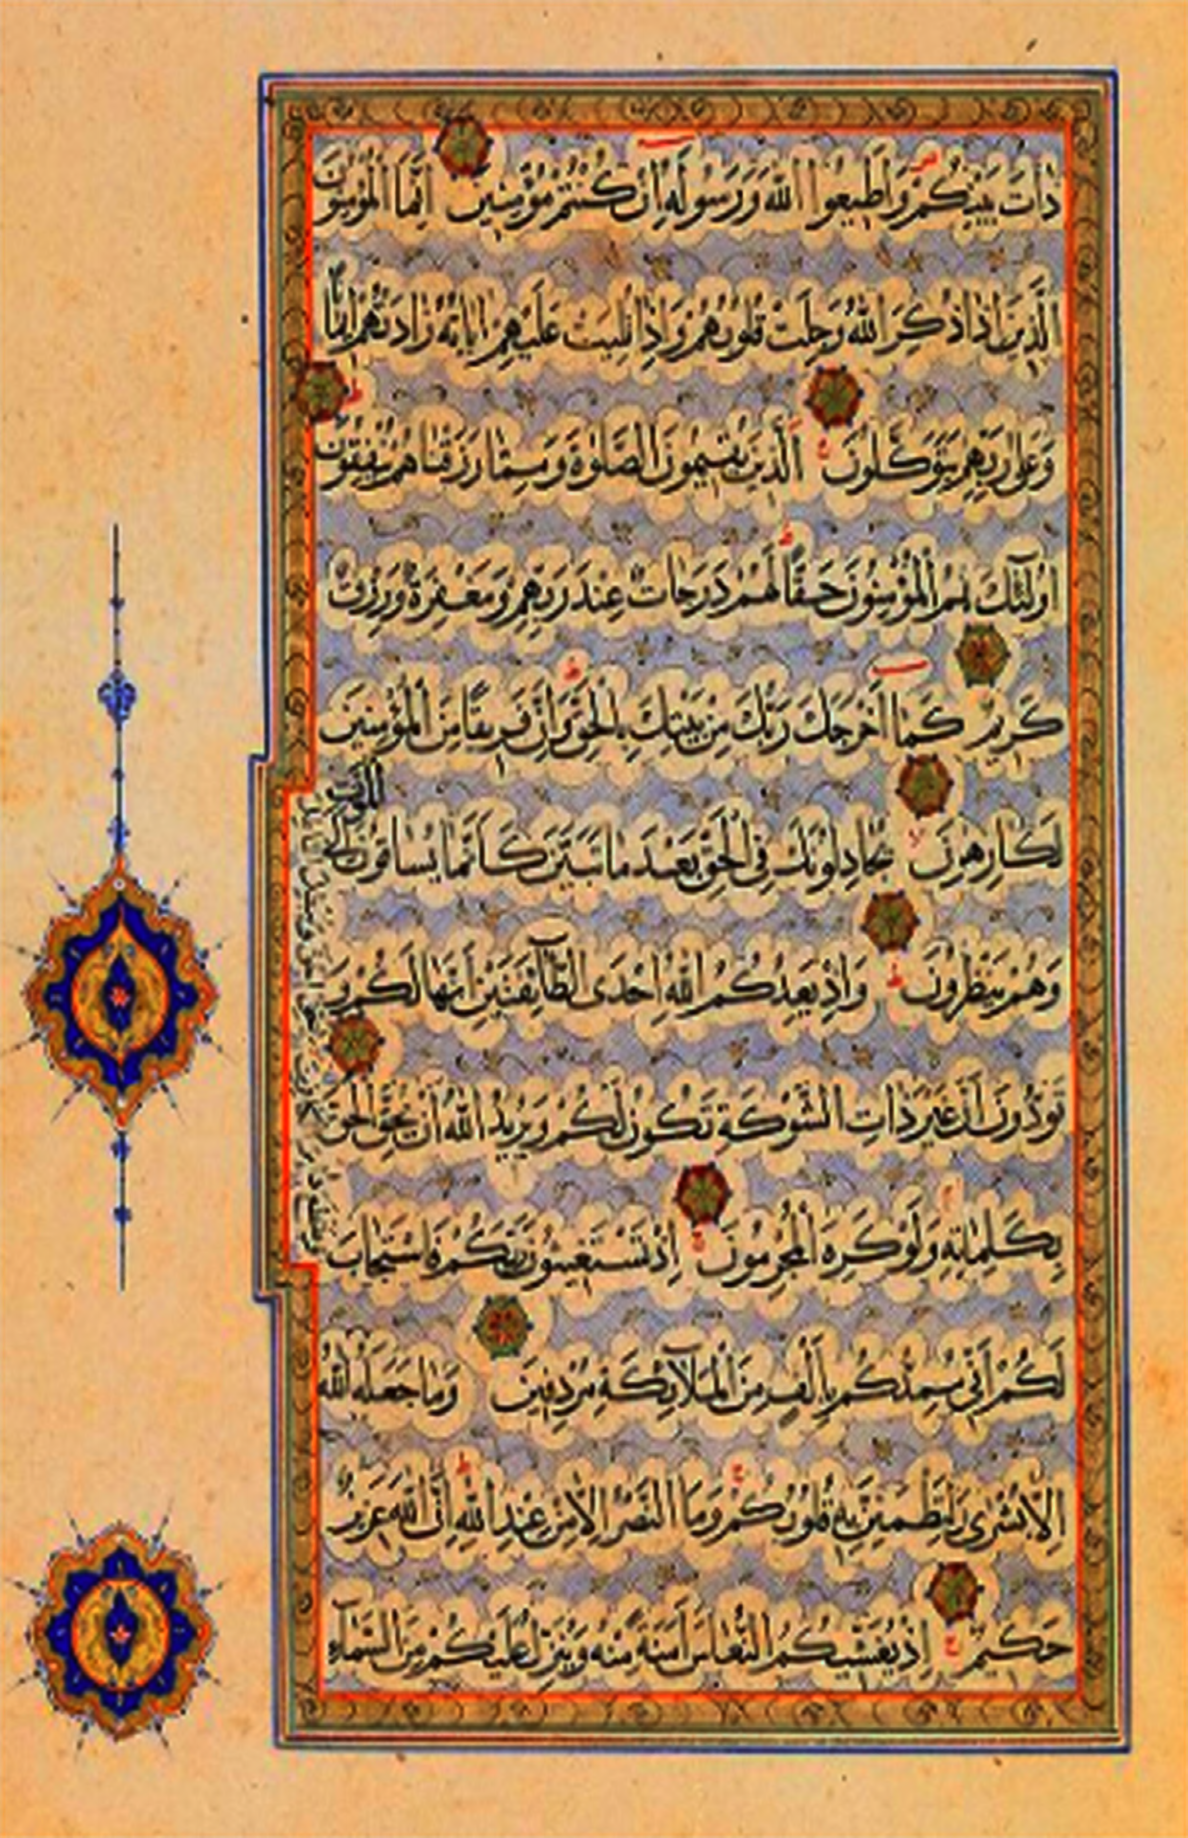 ذَاتَ بَيْنِكُمْ وَأَطِيعُوا اللهَ وَرَسُولَهُ اِنْ كُنْتُمْ مُؤْمِنِينَ اِنَّمَا الْمُؤْمِنُونَ
الَّذِينَ اِذَا ذُكِرَ اللهُ وَجِلَتْ قُلُوبُهُمْ وَاِذَا تُلِيَتْ عَلَيْهِمْ اٰيَاتُهُ زَادَتْهُمْ اِيمَانًا
وَعَلَى رَبِّهِمْ يَتَوَكَّلُونَ اَلَّذِينَ يُقِيمُونَ الصَّلٰوةَ وَمِمَّا رَزَقْنَاهُمْ يُنْفِقُونَ
اُولٰئِكَ هُمُ الْمُؤْمِنُونَ حَقًّا لَهُمْ دَرَجَاتٌ عِنْدَ رَبِّهِمْ وَمَغْفِرَةٌ وَرِزْقٌ
كَرِيمٌ كَمَا اَخْرَجَكَ رَبُّكَ مِنْ بَيْتِكَ بِالْحَقِّ وَاِنَّ فَرِيقًا مِنَ الْمُؤْمِنِينَ
لَكَارِهُونَ يُجَادِلُونَكَ فِي الْحَقِّ بَعْدَ مَا تَبَيَّنَ كَاَنَّمَا يُسَاقُونَ اِلَى الْمَوْتِ
وَهُمْ يَنْظُرُونَ وَاِذْ يَعِدُكُمُ اللهُ اِحْدَى الطَّائِفَتَيْنِ اَنَّهَا لَكُمْ وَ
تَوَدُّونَ اَنَّ غَيْرَ ذَاتِ الشَّوْكَةِ تَكُونُ لَكُمْ وَيُرِيدُ اللهُ اَنْ يُحِقَّ الْحَقَّ
بِكَلِمَاتِهِ وَلَوْ كَرِهَ الْمُجْرِمُونَ اِذْ تَسْتَغِيثُونَ رَبَّكُمْ فَاسْتَجَابَ
لَكُمْ اَنِّي مُمِدُّكُمْ بِاَلْفٍ مِنَ الْمَلَآئِكَةِ مُرْدِفِينَ وَمَا جَعَلَهُ اللهُ
اِلَّا بُشْرٰى وَلِتَطْمَئِنَّ بِهِ قُلُوبُكُمْ وَمَا النَّصْرُ اِلَّا مِنْ عِنْدِ اللهِ اِنَّ اللهَ عَزِيزٌ
حَكِيمٌ اِذْ يُغَشِّيكُمُ النُّعَاسَ اَمَنَةً مِنْهُ وَيُنَزِّلُ عَلَيْكُمْ مِنَ السَّمَاءِ